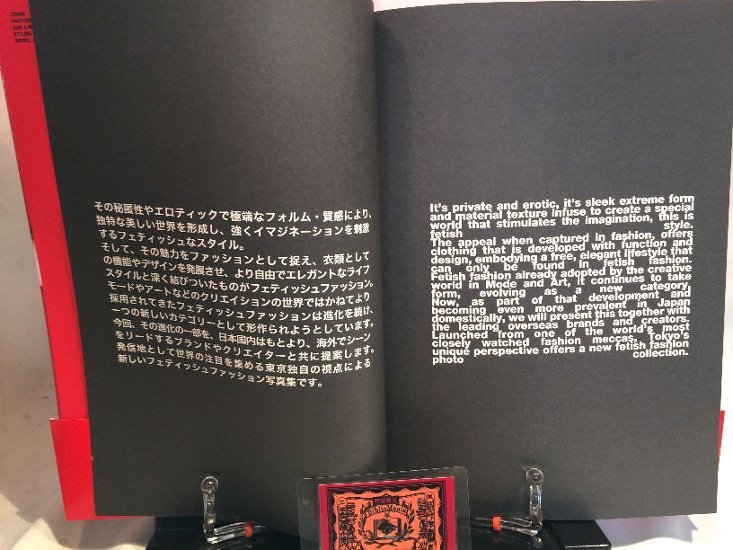 COVER
その秘匿性やエロティックで極端なフォルム・質感により、
独特な美しい世界を形成し、強くイマジネーションを刺激
するフェティッシュなスタイル。
そして、その魅力をファッションとして捉え、衣類として
の機能やデザインを発展させ、より自由でエレガントなライフ
スタイルと深く結びついたものがフェティッシュファッション。
モードやアートなどのクリエイションの世界ではかねてより
採用されてきたフェティッシュファッションは進化を続け、
一つの新しいカテゴリーとして形作られようとしています。
今回、その進化の一部を、日本国内はもとより、海外でシーン
をリードするブランドやクリエイターと共に提案します。
発信地として世界の注目を集める東京独自の視点による
新しいフェティッシュファッション写真集です。
It's private and erotic, it's sleek extreme form
and material texture infuse to create a special
world that stimulates the imagination, this is
fetish style.
The appeal when captured in fashion, offers
clothing that is developed with function and
design, embodying a free, elegant lifestyle that
can only be found in fetish fashion.
Fetish fashion already adopted by the creative
world in Mode and Art, it continues to take
form, evolving as a new category.
Now, as part of that development and
becoming even more prevalent in Japan
domestically, we will present this together with
the leading overseas brands and creators.
Launched from one of the world's most
closely watched fashion meccas, Tokyo's
unique perspective offers a new fetish fashion
photo collection.